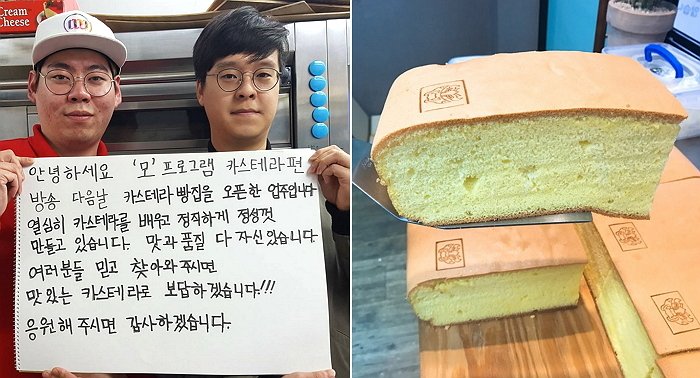 Cream
Cheese
안녕하세요 '모' 프로그램 카스테라편
방송 다음날 카스테라 빵집을 오픈한 업주입니다
열심히 카스테라를 배우고 정직하게 정성껏
만들고 있습니다. 맛과 품질 다 자신있습니다.
여러분들 믿고 찾아와 주시면
맛있는 카스테라로 보답하겠습니다!!!
응원해 주시면 감사하겠습니다.